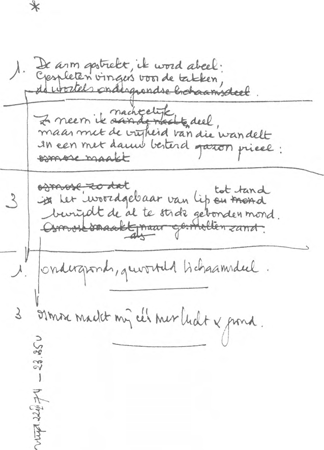 *
1. De arm gestrekt, ik word abeel:
Gespleten vingers voor de takken,
de wortels ondergrondse lichaamsdeel.
nachtelijk
Zo neem ik aan de nacht deel,
maar met de vrijheid van die wandelt
in een met dauw gazon prieel:
osmose maakt
3
osmose zo dat tot stand
het woordgebaar van lip en mond
bevrijdt de al te strak gebonden mond.
Osmose maakt, maar zand.
als
1. ondergronds, geworteld lichaamsdeel.
3 osmose maakt mij één met lucht & grond.